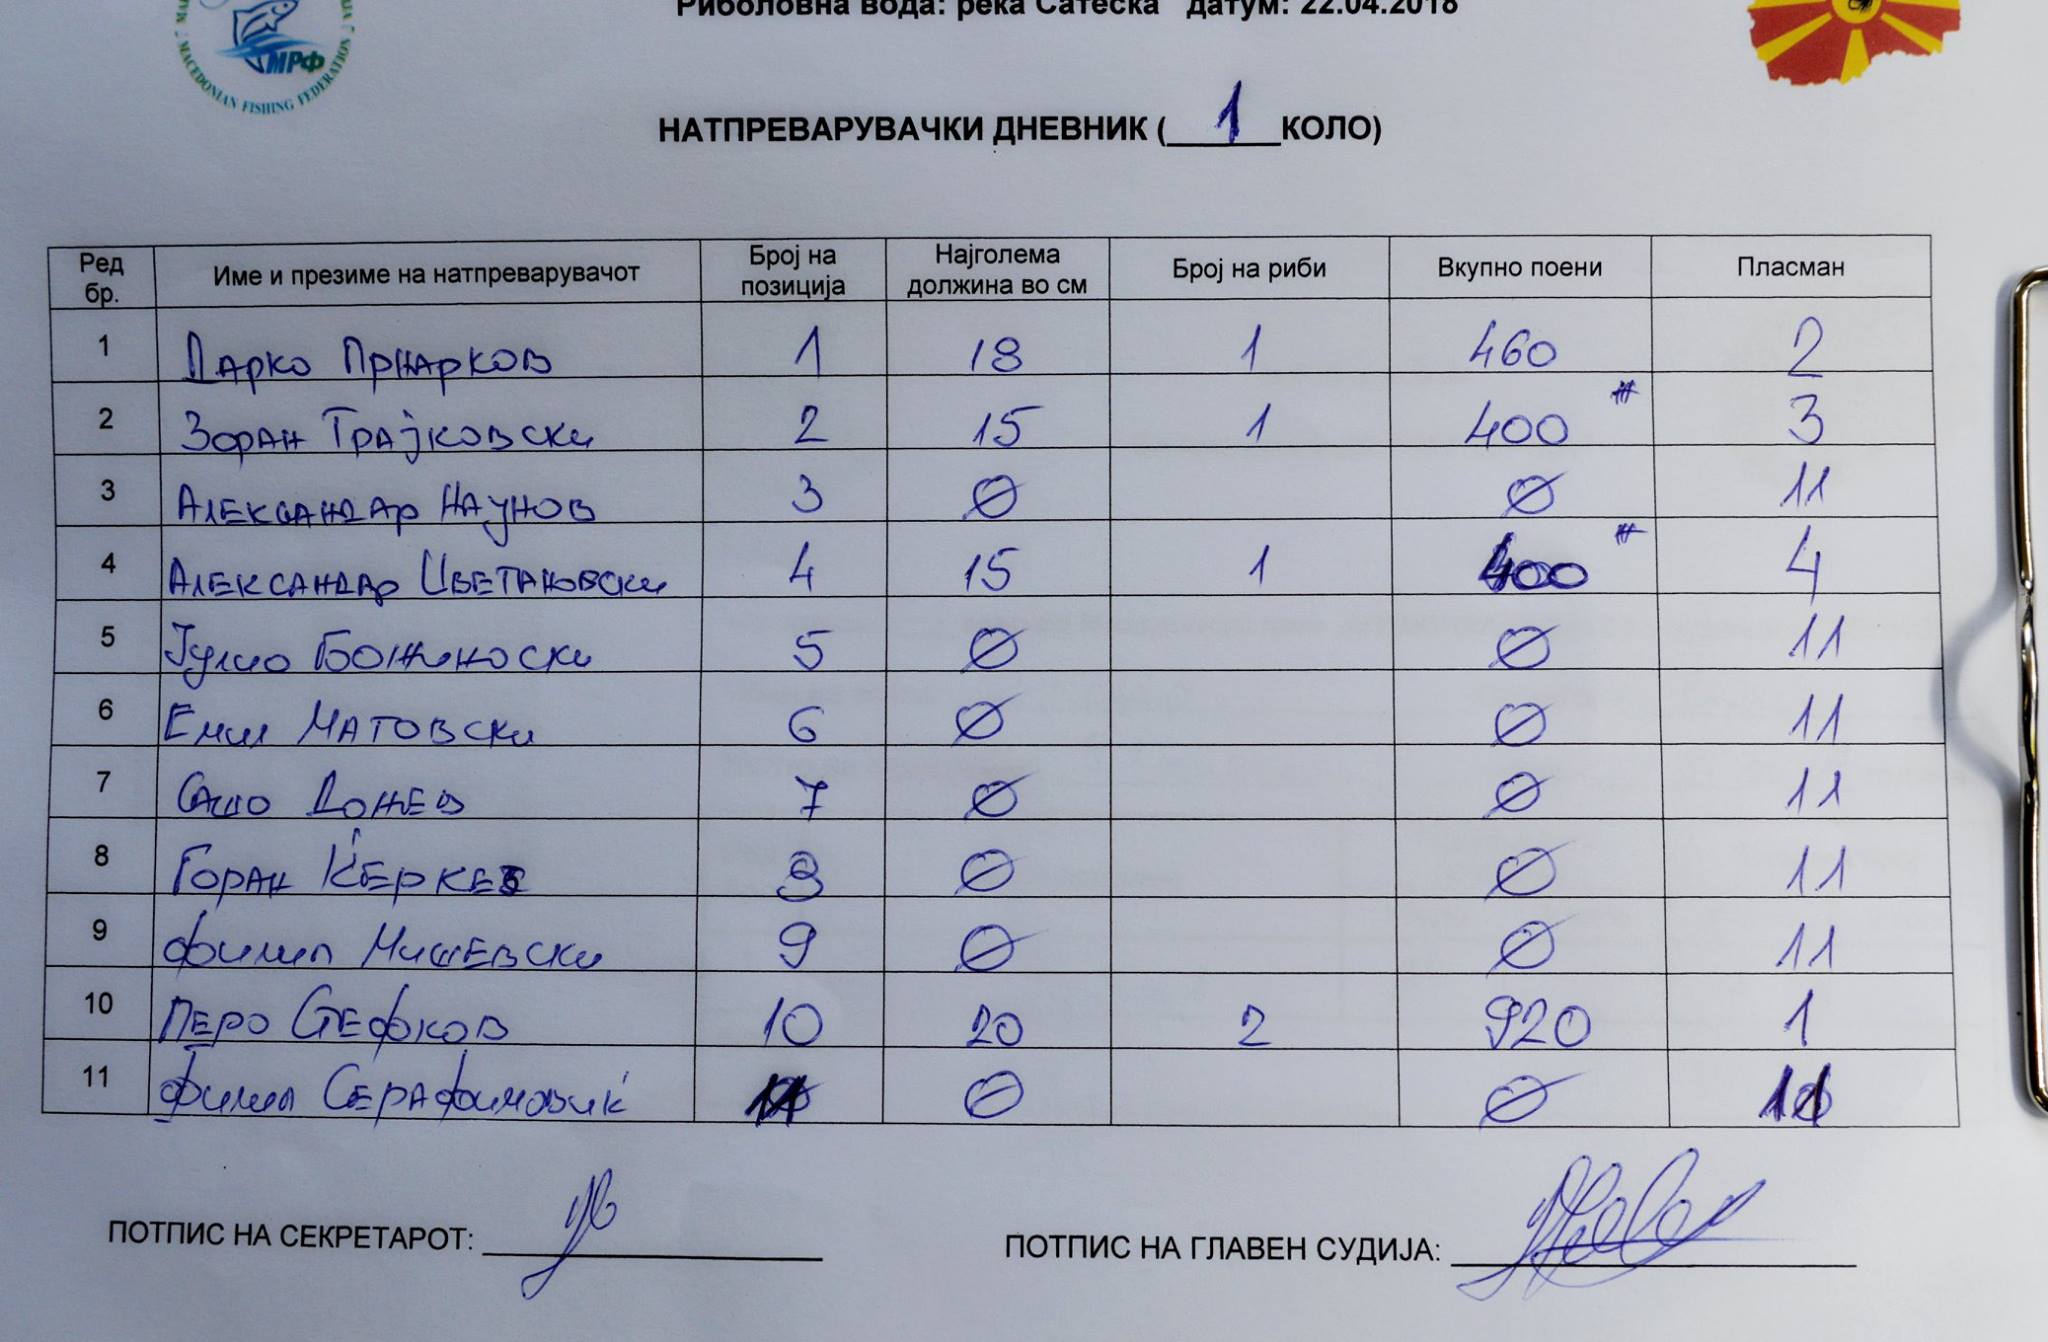 MACEDONIAN FISHING FEDERATION
МРФ
Риболовна вода: река Сатеска датум: 22.04.2018
НАТПРЕВАРУВАЧКИ ДНЕВНИК ( 1 КОЛО)
Ред бр. Име и презиме на натпреварувачот Број на позиција Најголема должина во см Број на риби Вкупно поени Пласман
1 Дарко Прнарков 1 18 1 460 2
2 Зоран Трајковски 2 15 1 400 # 3
3 Александар Наунов 3 Ø Ø 11
4 Александар Цветановски 4 15 1 400 # 4
5 Јулио Божиноски 5 Ø Ø 11
6 Емил Матовски 6 Ø Ø 11
7 Сашо Донев 7 Ø Ø 11
8 Горан Ќеркез 8 Ø Ø 11
9 Филип Мишевски 9 Ø Ø 11
10 Перо Стефков 10 20 2 920 1
11 Филип Серафимовиќ 11 Ø Ø 11
ПОТПИС НА СЕКРЕТАРОТ: ПОТПИС НА ГЛАВЕН СУДИЈА: